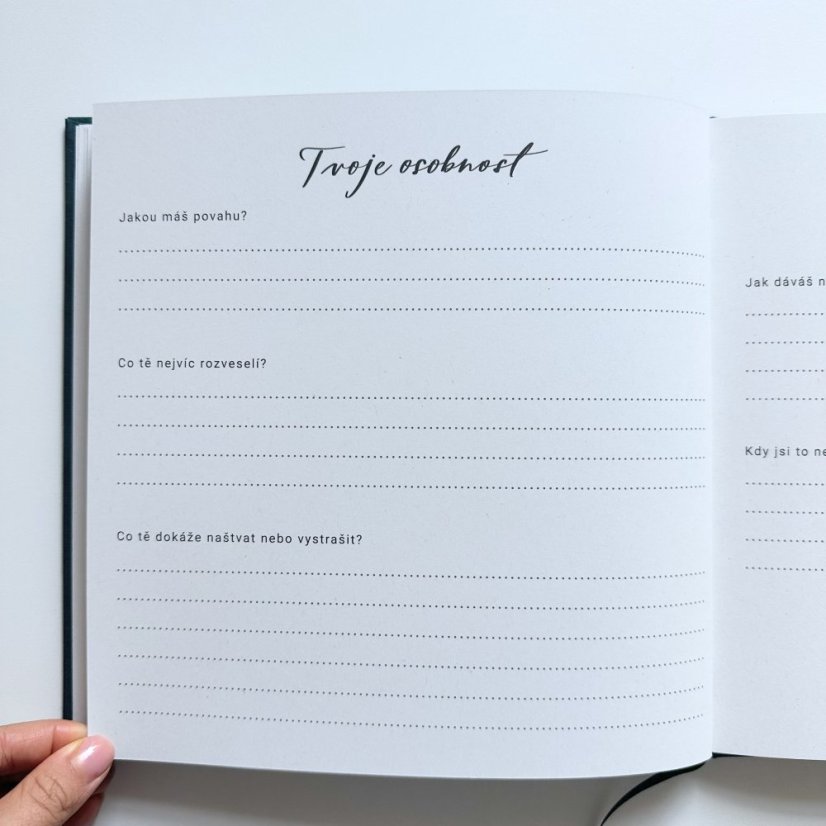 Tvoje osobnost
Jakou máš povahu?
Co tě nejvíc rozveselí?
Co tě dokáže naštvat nebo vystrašit?
Jak dáváš
Kdy jsi to